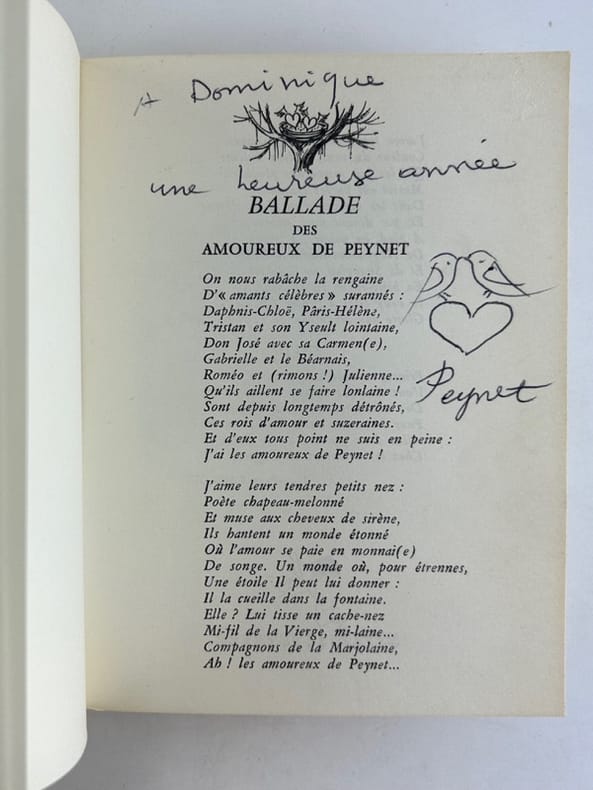 A Dominique
une heureuse année
BALLADE
DES
AMOUREUX DE PEYNET
On nous rabâche la rengaine
D'« amants célèbres » surannés :
Daphnis-Chloë, Pâris-Hélène,
Tristan et son Yseult lointaine,
Don José avec sa Carmen(e),
Gabrielle et le Béarnais,
Roméo et (rimons !) Julienne...
Qu'ils aillent se faire lonlaine !
Sont depuis longtemps détrônés,
Ces rois d'amour et suzeraines.
Et d'eux tous point ne suis en peine :
J'ai les amoureux de Peynet !
Peynet
J'aime leurs tendres petits nez :
Poète chapeau-melonné
Et muse aux cheveux de sirène,
Ils hantent un monde étonné
Où l'amour se paie en monnai(e)
De songe. Un monde où, pour étrennes,
Une étoile Il peut lui donner :
Il la cueille dans la fontaine.
Elle ? Lui tisse un cache-nez
Mi-fil de la Vierge, mi-laine...
Compagnons de la Marjolaine,
Ah ! les amoureux de Peynet...